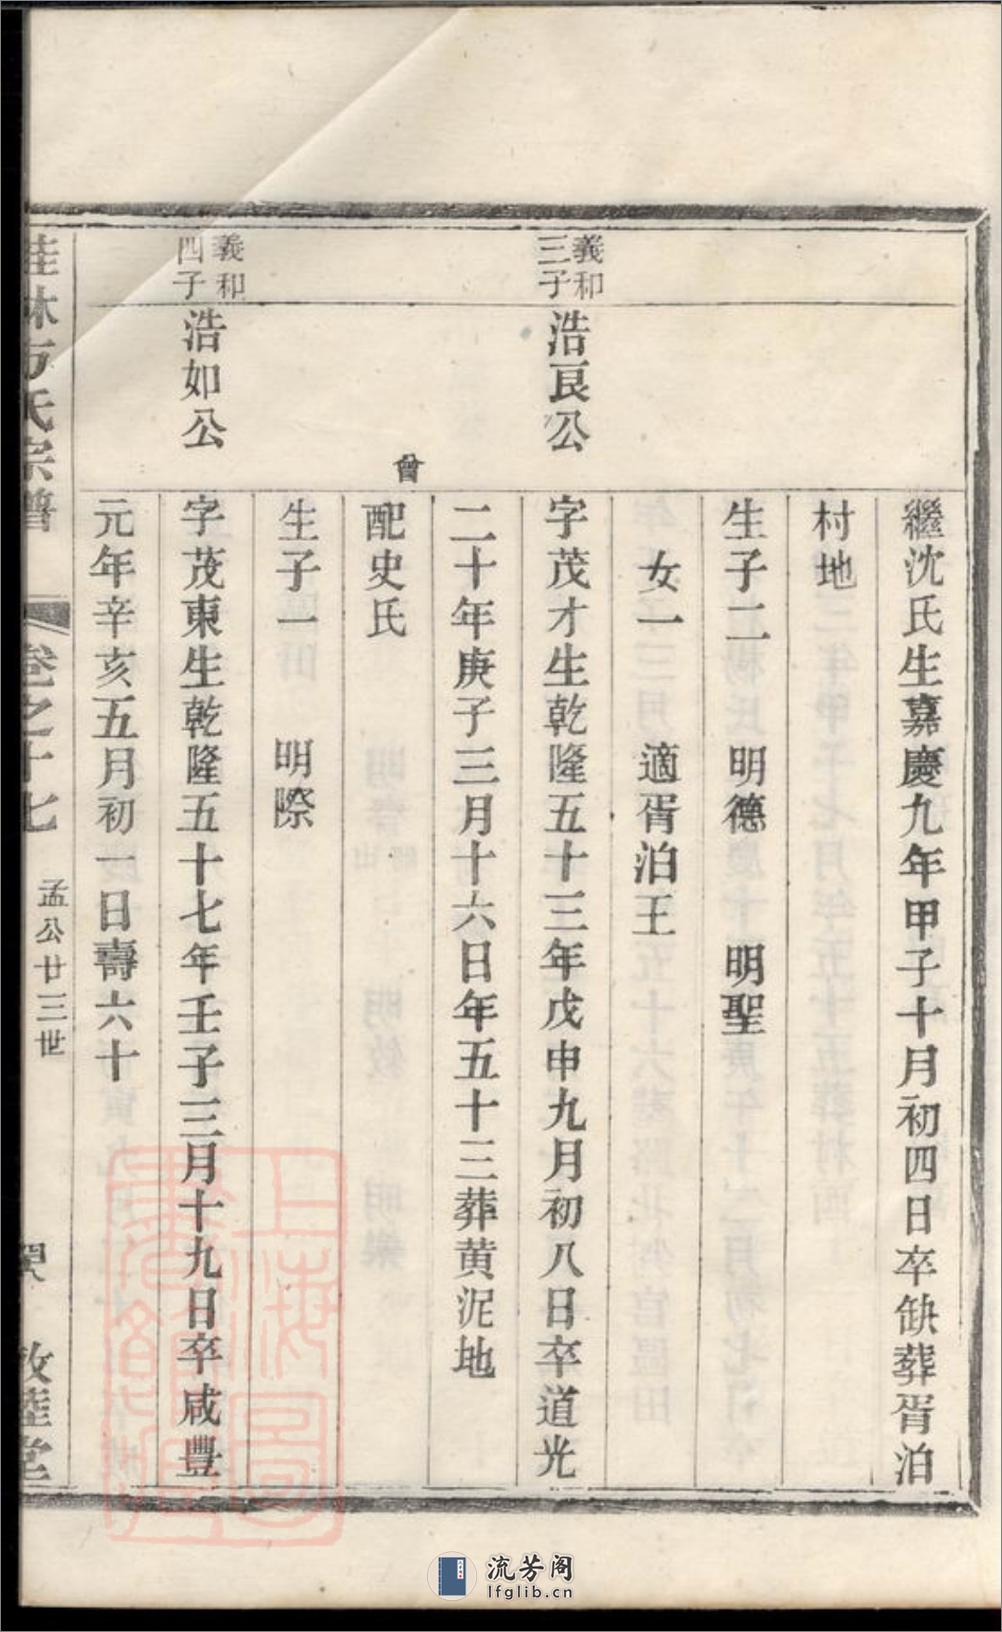 繼沈氏生嘉慶九年甲子十月初四日卒缺葬胥泊
村地
生子二 明德 明聖
女一 適胥泊王
義和
三子
浩良公
字茂才生乾隆五十三年戊申九月初八日卒道光
二十年庚子三月十六日年五十三葬黄泥地
曾
配史氏
生子一 明際
義和
四子
浩如公
字茂東生乾隆五十七年壬子三月十九日卒咸豐
元年辛亥五月初一日壽六十
桂林方氏宗譜
卷之十七
孟公廿三世
敦睦堂
上海圖書館藏
流芳阁
lfglib.cn